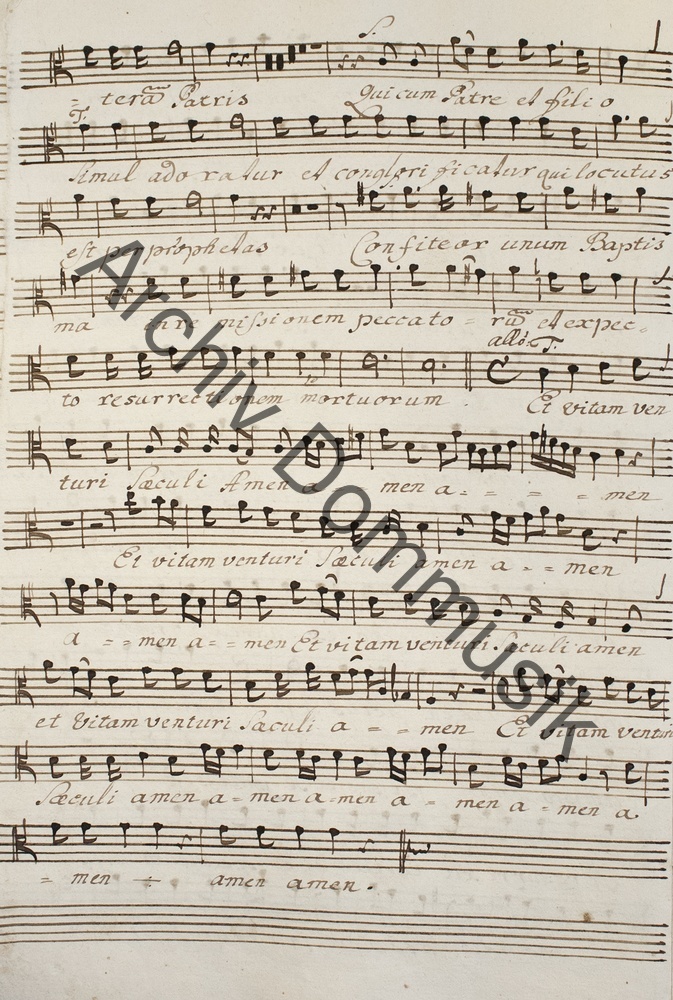 S.
= tera Patris Qui cum Patre et filio
T.
Simul adoratur et conglorificatur qui locutus
est per prophetas Confiteor unum Baptis
ma in re missionem peccato = rum et expec=
allo: T.
to resurrectionem mortuorum . Et vitam ven
turi Sæculi Amen a men a = = = = men
Et vitam venturi Sæculi amen a = = men
a = = men a = = men Et vitam venturi Sæculi amen
et vitam venturi Sæculi a = = men Et vitam venturi
Sæculi amen a = men a = men a = men a = men a
= men ÷ amen amen .
Archiv Dommusik